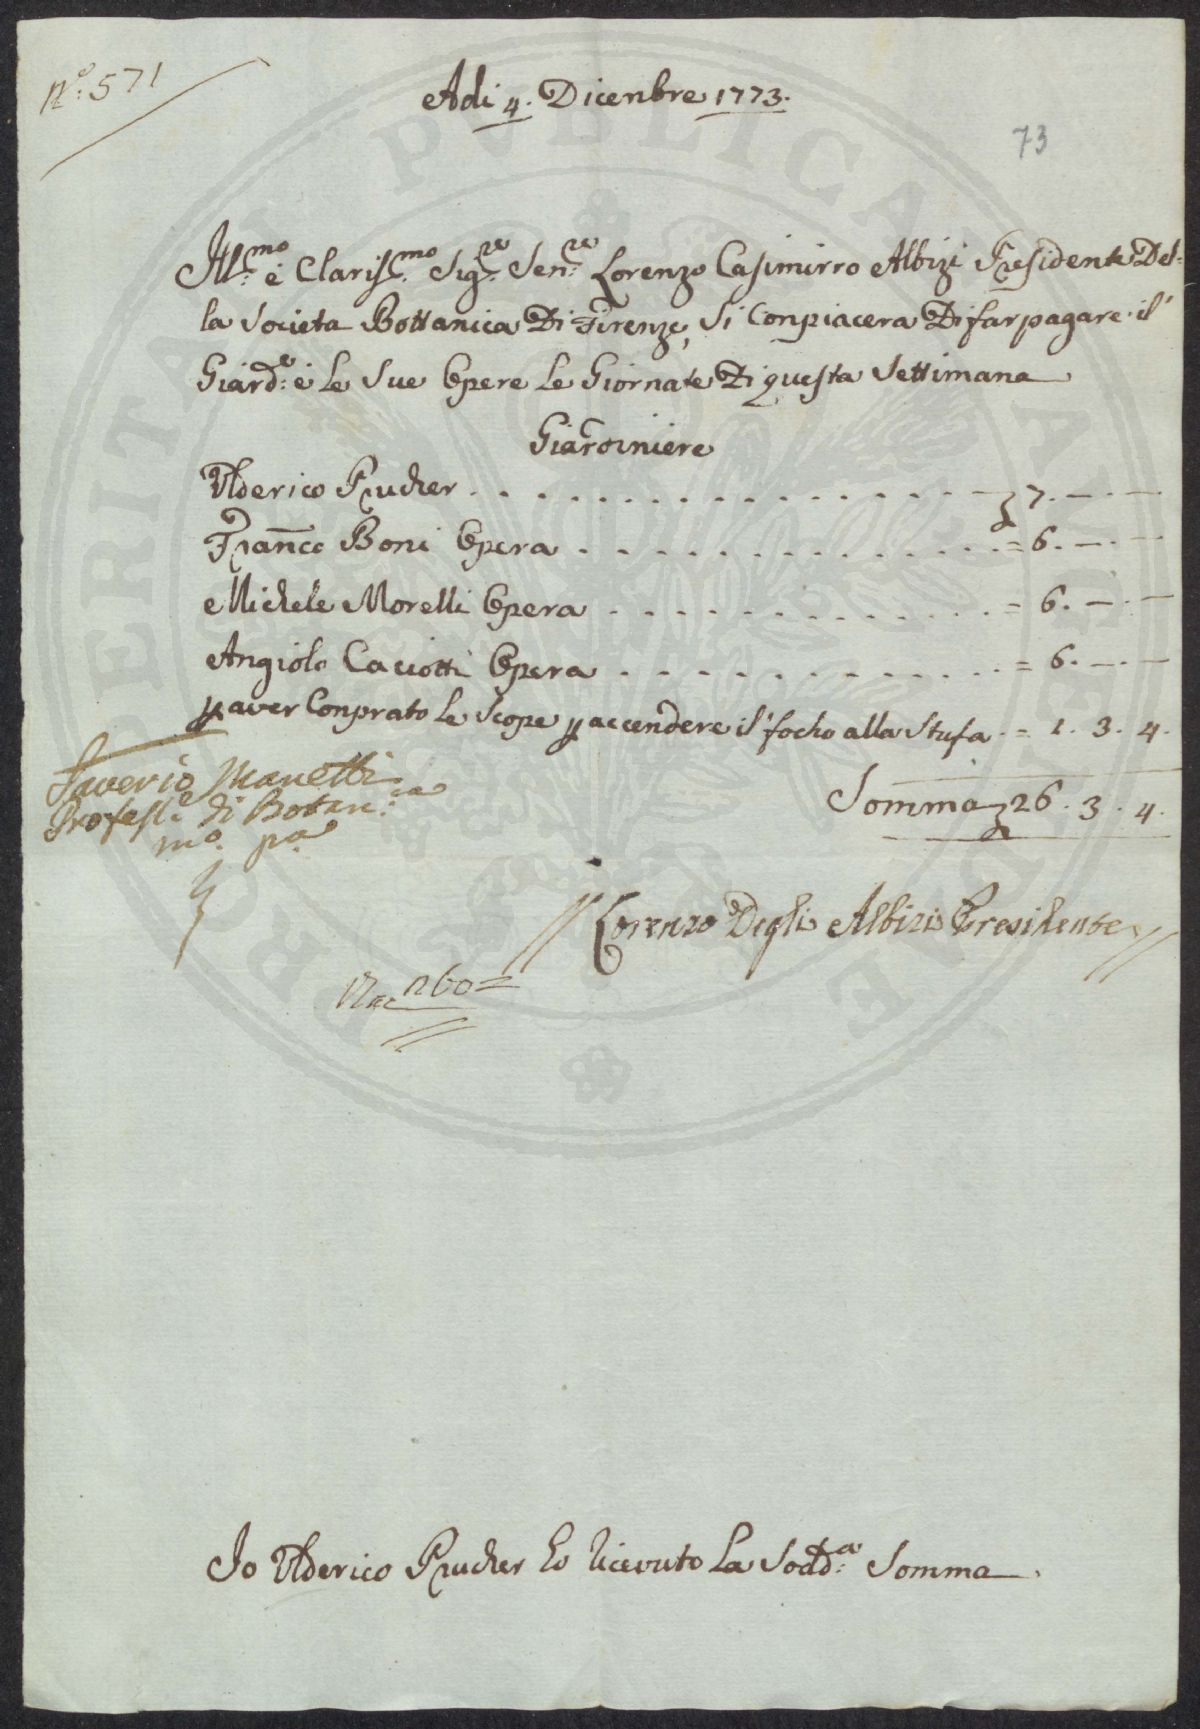 N.º 571
Adi 4. Dicenbre 1773.
73
Ill.mo è Clariss.mo Sig.re Sen.re Lorenzo Casimirro Albizi Presidente Del-
la Societa Bottanica Di Firenze, Si Conpiacera Di far pagare il
Giard.e è le Sue Opere le Giornate Di questa Settimana
Giardiniere
Ulderico Prucker 7. — . —
Franco Boni Opera = 6. — . —
Michele Morelli Opera = 6. — . —
Angiolo Caciotti Opera = 6. — . —
p aver Conprato le Scope p accendere il focho alla Stufa = 1. 3. 4.
Somma 26. 3. 4.
Saverio Manetti
Profess.e di Botan.ca
mo. po.
Lorenzo Degli Albizi Presidente
260=
Io Ulderico Prucker ho ricevuto La Sodd.a Somma.
PVBLICAE
PROSPERITATI